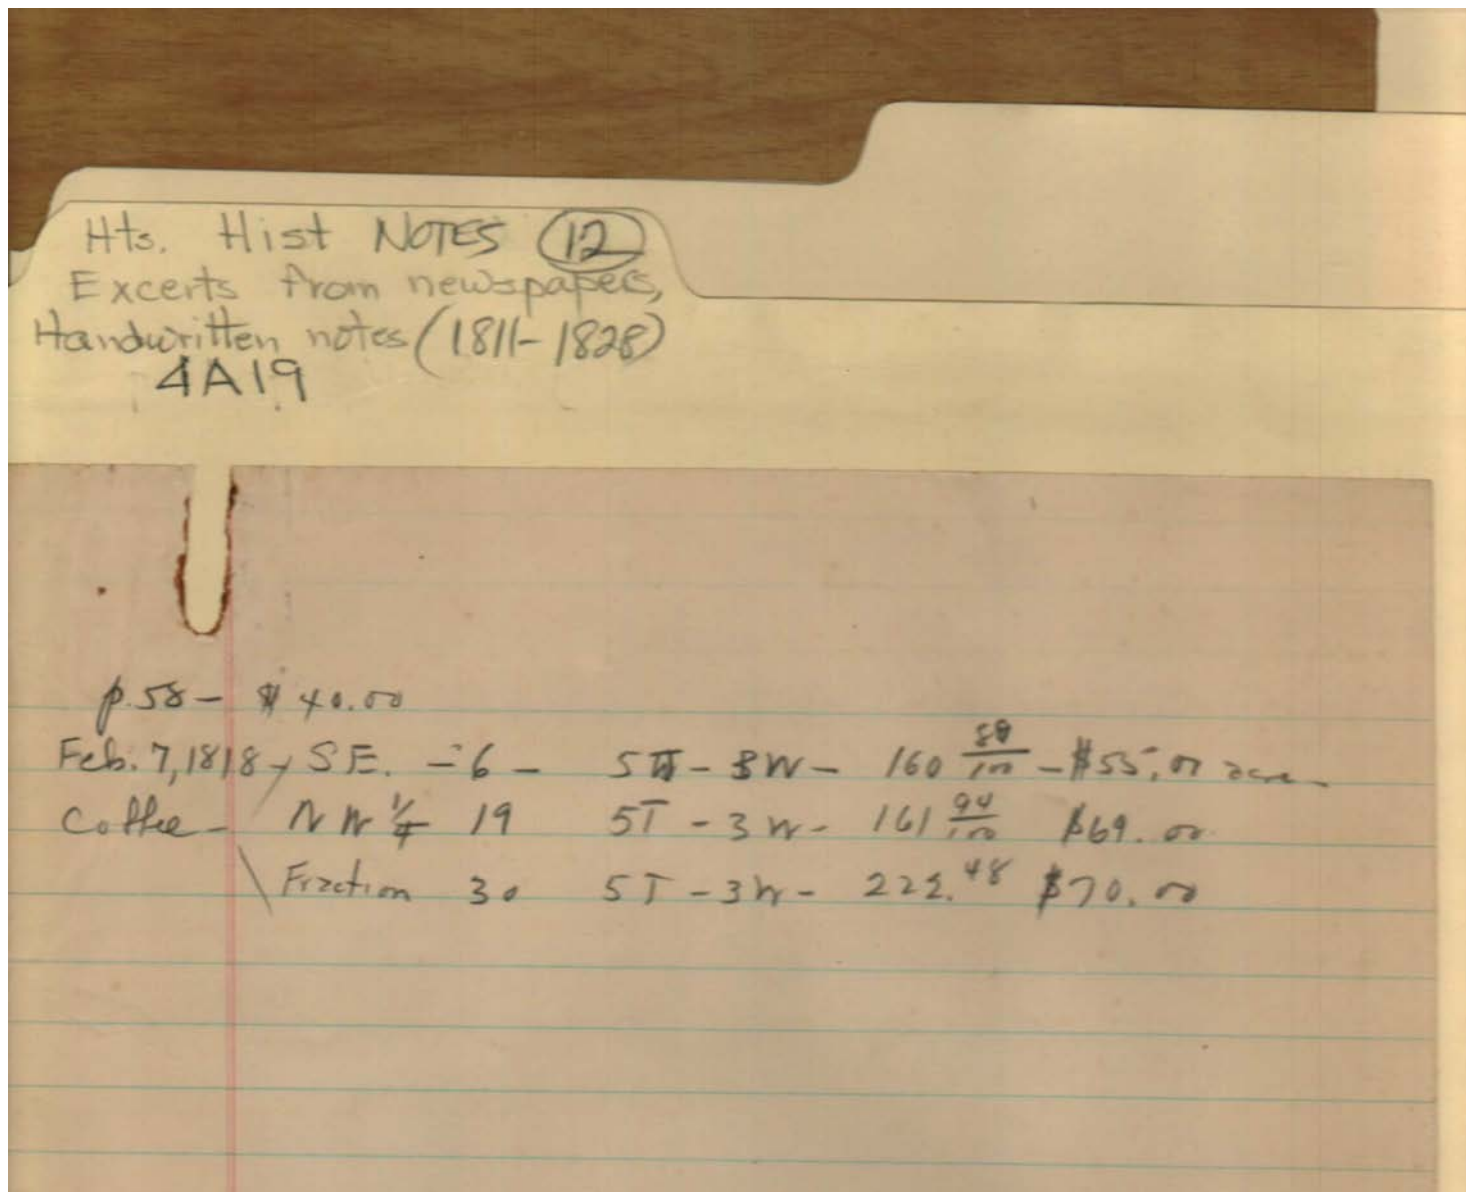 Hts. Hist NOTES 12
Excerts from newspapers,
Handwritten notes (1811-1828)
4A19
p.58- $40.00
Feb. 7, 1818, S.E. - 6 - 5T - 3W - 160 /100 - $55.00 acre
Coffee - NW 1/4 19 5T - 3W - 161 94/100 $69.00
Fraction 30 5T - 3W - 222.48 $70.00